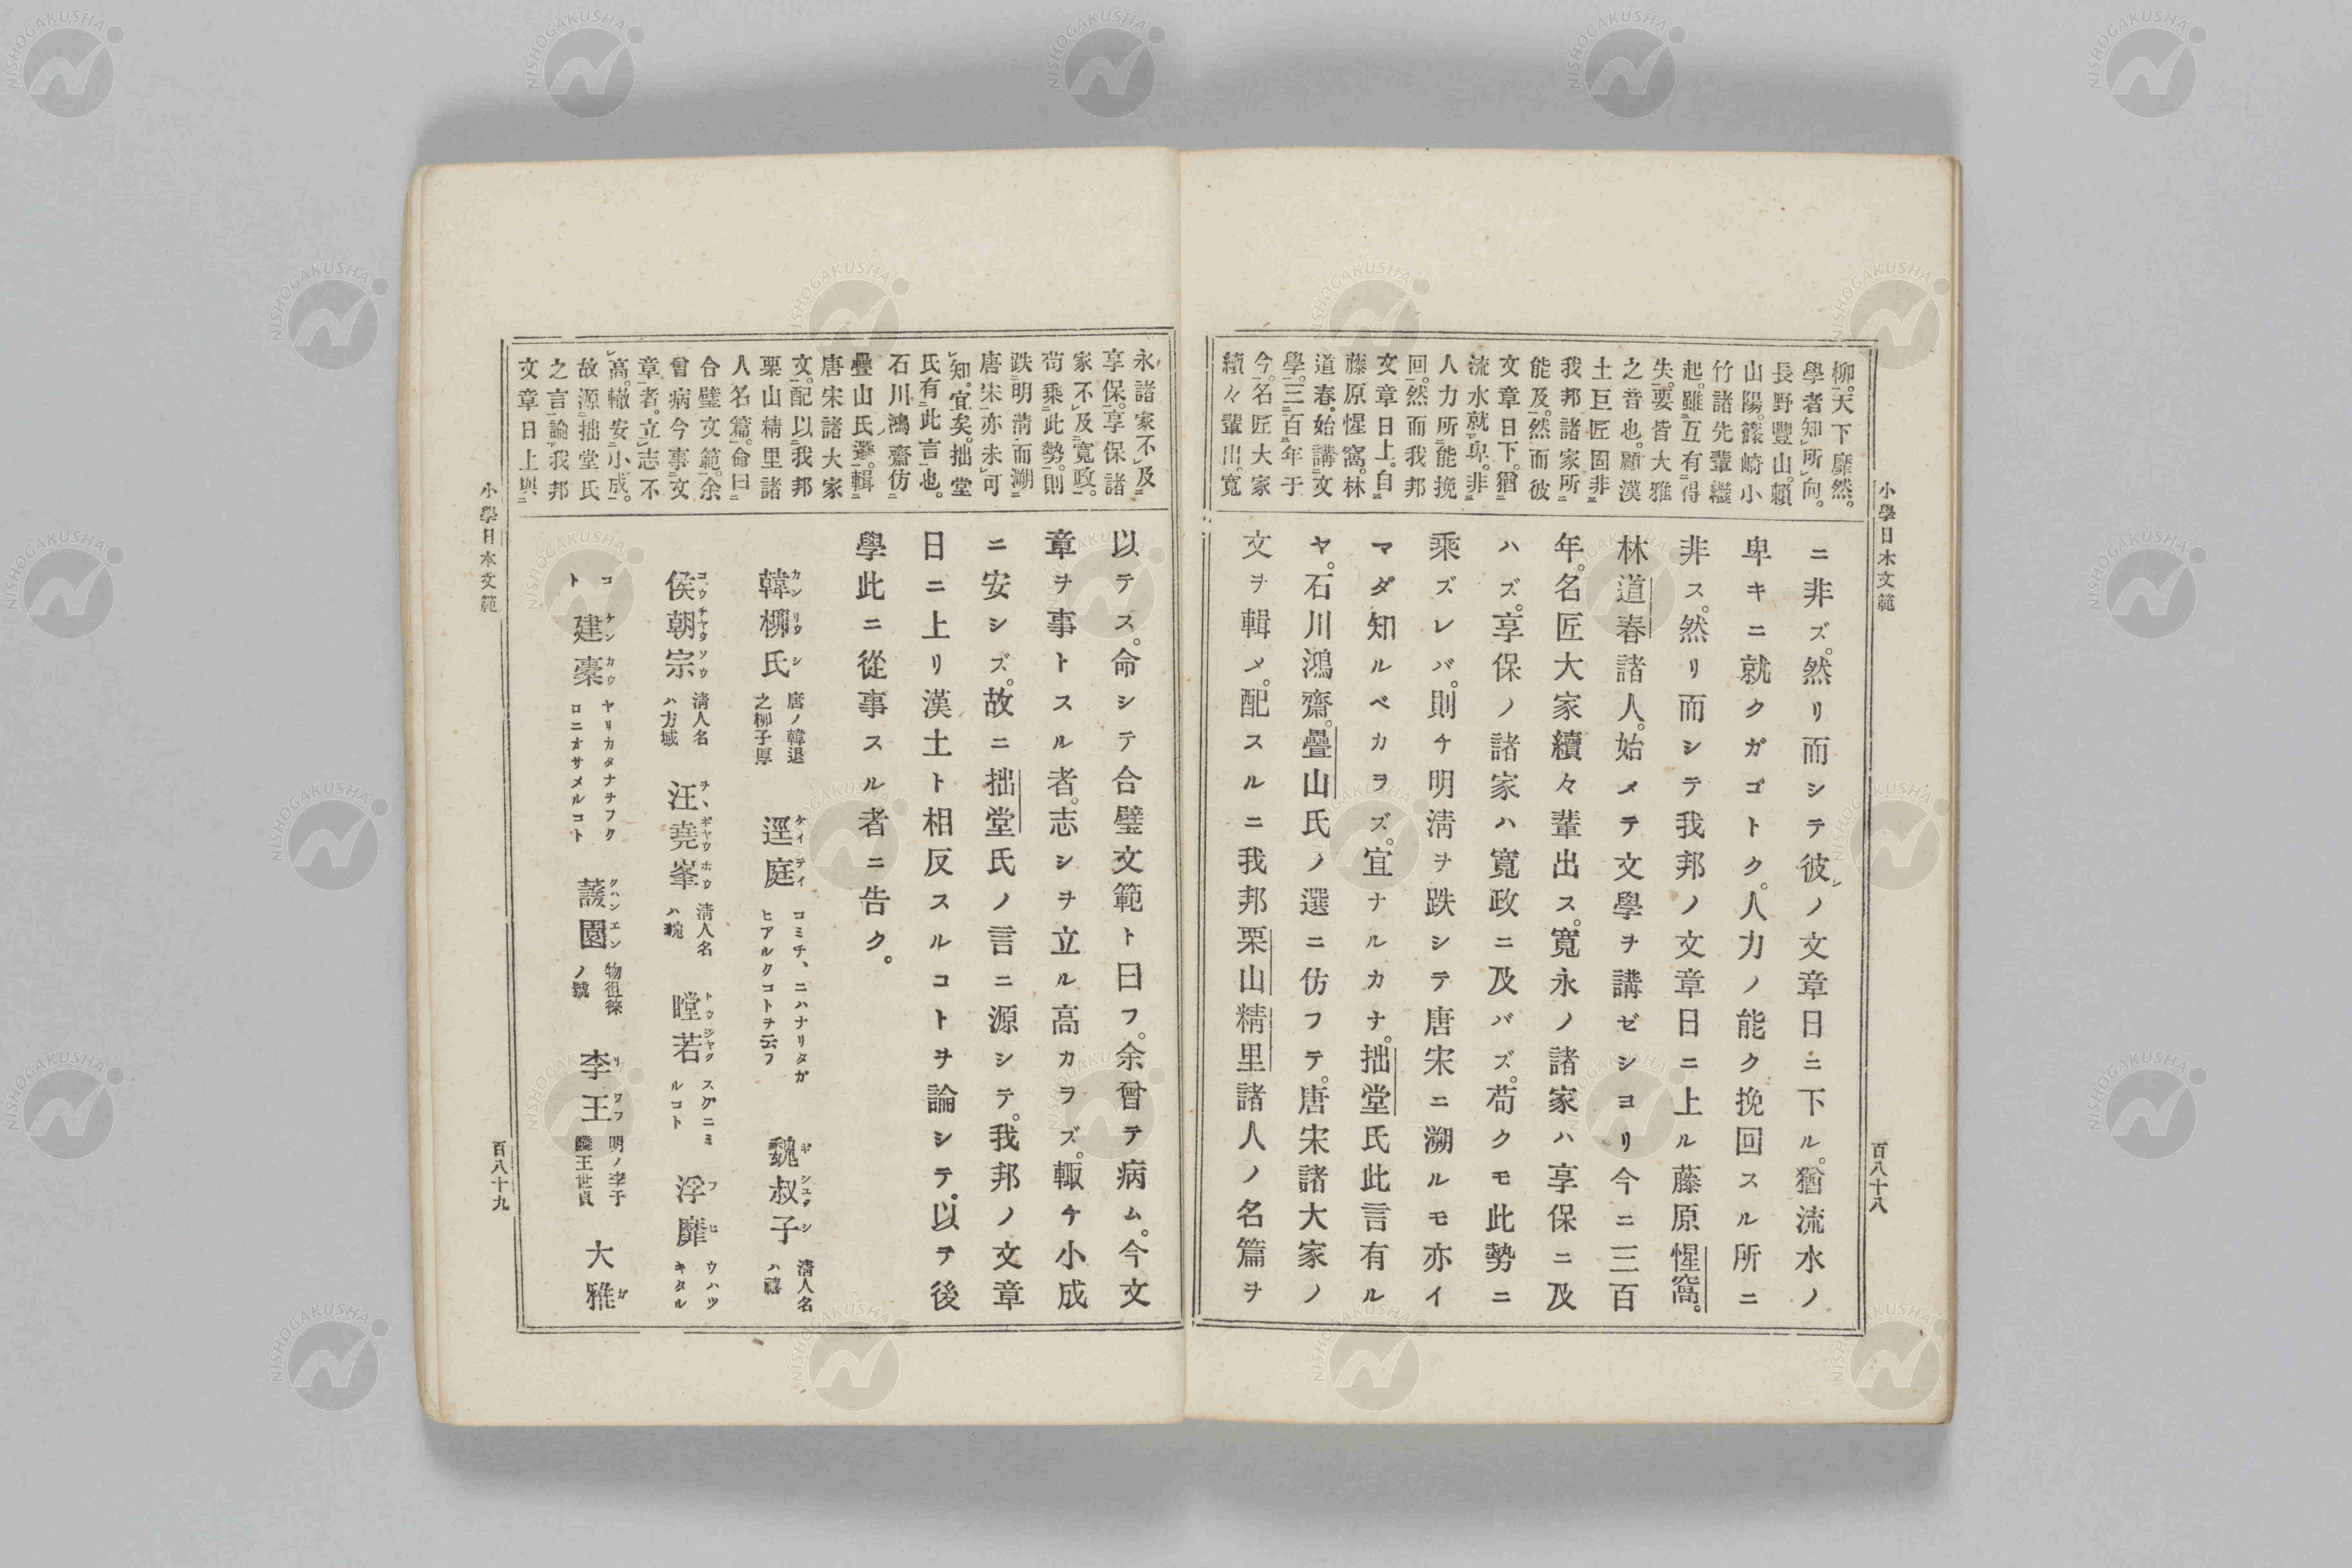 小學日本文範
百八十八
柳。天下靡然。
學者知所向。
長野豐山。賴
山陽。篠崎小
竹諸先輩繼
起。雖互有得
失。要皆大雅
之音也。顧漢
土巨匠固非
我邦諸家所
能及。然而彼
文章日下。猶
流水就卑。非
人力所能挽
回。然而我邦
文章日上。自
藤原惺窩。林
道春。始講文
學。三百年于
今。名匠大家
續々輩出。寬
ニ非ズ。然リ而シテ彼ノ文章日ニ下ル。猶流水ノ
卑キニ就クガゴトク。人力ノ能ク挽回スル所ニ
非ス。然リ而シテ我邦ノ文章日ニ上ル藤原惺窩。
林道春諸人。始メテ文學ヲ講ゼシヨリ今ニ三百
年。名匠大家續々輩出ス。寬永ノ諸家ハ享保ニ及
ハズ。享保ノ諸家ハ寬政ニ及バズ。苟クモ此勢ニ
乘ズレバ。則チ明淸ヲ跌シテ唐宋ニ溯ルモ亦イ
マダ知ルベカヲズ。宜ナルカナ。拙堂氏此言有ル
ヤ。石川鴻齋。疊山氏ノ選ニ仿フテ。唐宋諸大家ノ
文ヲ輯メ。配スルニ我邦栗山精里諸人ノ名篇ヲ
永諸家不及
享保。享保諸
家不及寬政。
苟乘此勢。則
跌明淸而溯
唐宋亦未可
知。宜矣。拙堂
氏有此言也。
石川鴻齋仿
疊山氏選。輯
唐宋諸大家
文。配以我邦
栗山精里諸
人名篇。命曰
合璧文範。余
曾病今事文
章者。立志不
高。輙安小成。
故源拙堂氏
之言論我邦
文章日上與
以テス。命シテ合璧文範ト曰フ。余曾テ病ム。今文
章ヲ事トスル者。志シヲ立ル高カラズ。輙チ小成
ニ安シズ。故ニ拙堂氏ノ言ニ源シテ。我邦ノ文章
日ニ上リ漢土ト相反スルコトヲ論シテ。以テ後
學此ニ從事スル者ニ告ク。
韓柳氏 カンリウシ 唐ノ韓退之柳子厚 逕庭 ケイテイ コミチ、ニハナリタガヒアルクコトヲ云フ 魏叔子 ギシユクシ 淸人名ハ禧
侯朝宗 コウチヤウソウ 淸人名ハ方域 汪堯峯 ヲ、ギヤウホウ 淸人名ハ琬 瞠若 トウジヤク スグニミルコト 浮靡 フヒ ウハツキタル
コト 建櫜 ケンカウ ヤリカタナヲフクロニオサメルコト 蘐園 クハンエン 物徂徠ノ號 李王 リワフ 明ノ李于鱗王世貞 大雅 ガ
小學日本文範
百八十九